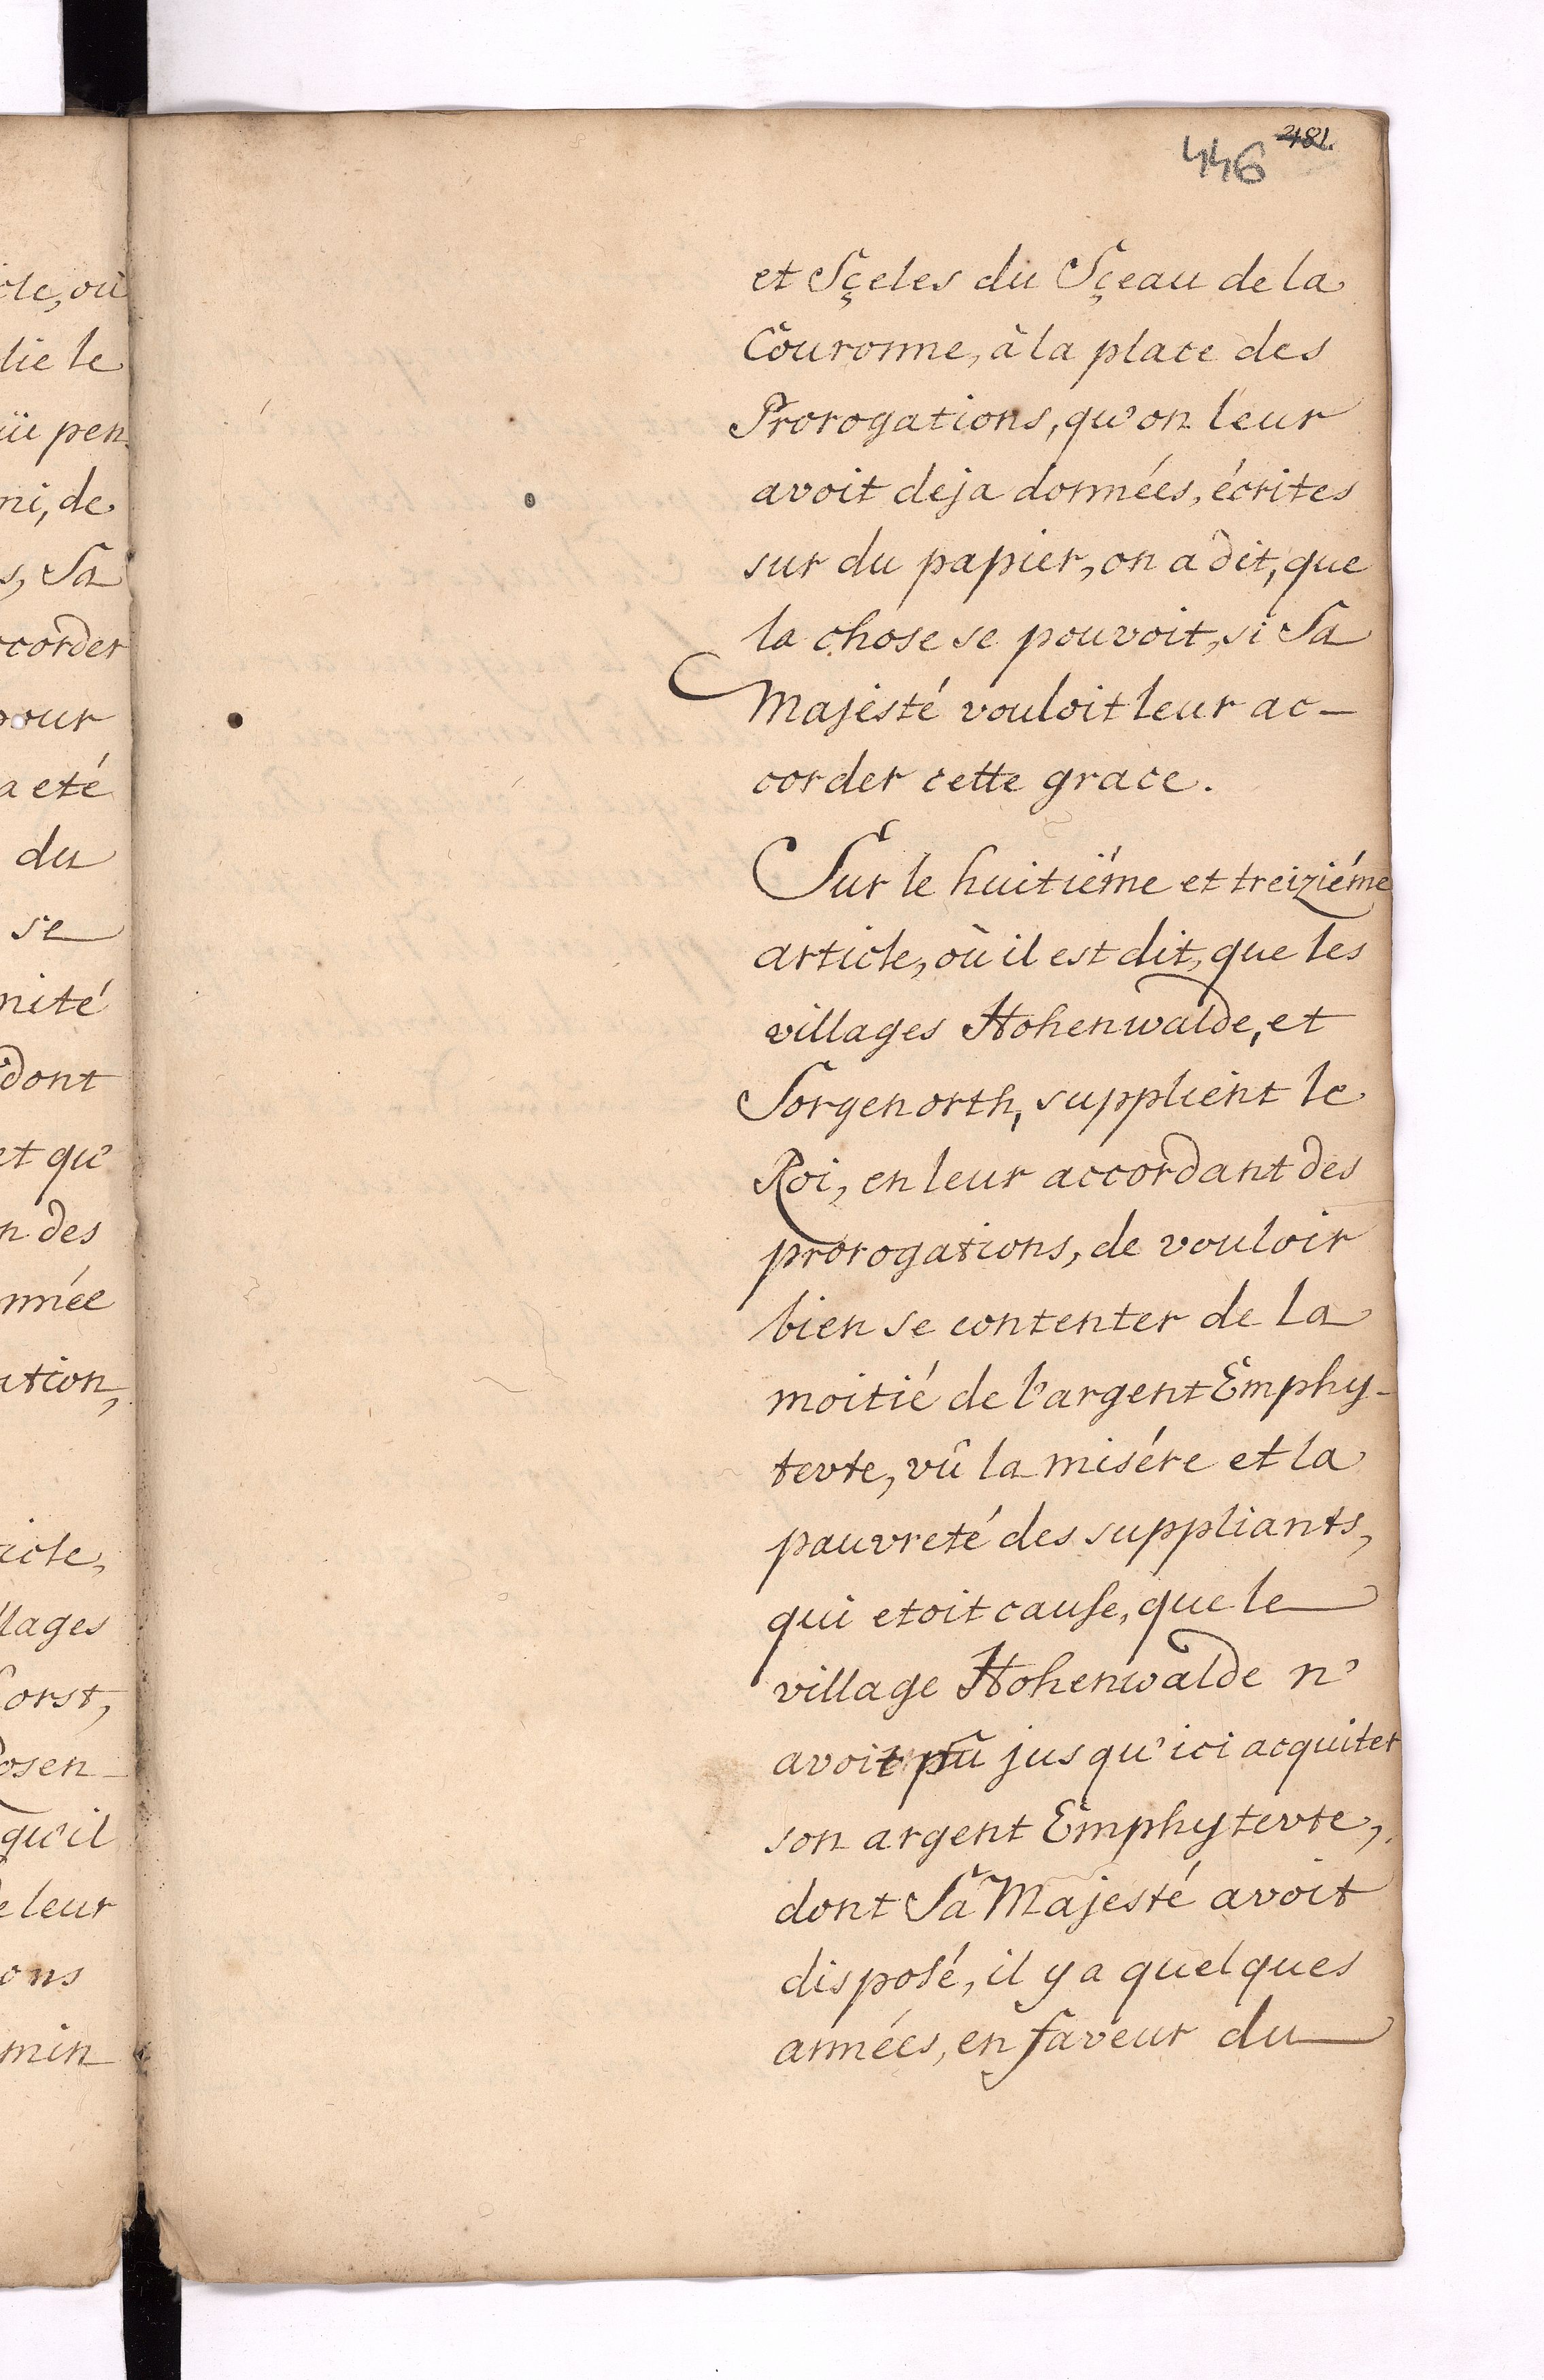 cle, où
lie le
üe pen
ni, de
s, Sa
ccorder
pour
a eté
du
se
nité
dont
et qu'
n des
nnée
ation,
icle,
llages
orst,
osen-
qu'il
e leur
ons
min
446 2182.
et Sçeles du Sçeau de la
Couronne, à la place des
Prorogations, qu'on leur
avoit deja données, écrites
sur du papier, on a dit, que
la chose se pouvoit, si Sa
Majesté vouloit leur ac-
corder cette grace.
Sur le huitiéme et treiziéme
article, où il est dit, que les
villages Hohenwalde, et
Sorgenorth, supplient le
Roi, en leur accordant des
prorogations, de vouloir
bien se contenter de la
moitié de l'argent Emphy-
tevte, vû la misére et la
pauvreté des suppliants,
qui etoit cause, que le
village Hohenwalde n'
avoit pû jusqu'ici acquiter
son argent Emphytevte,
dont Sa Majesté avoit
disposé, il y a quelques
années, en faveur du